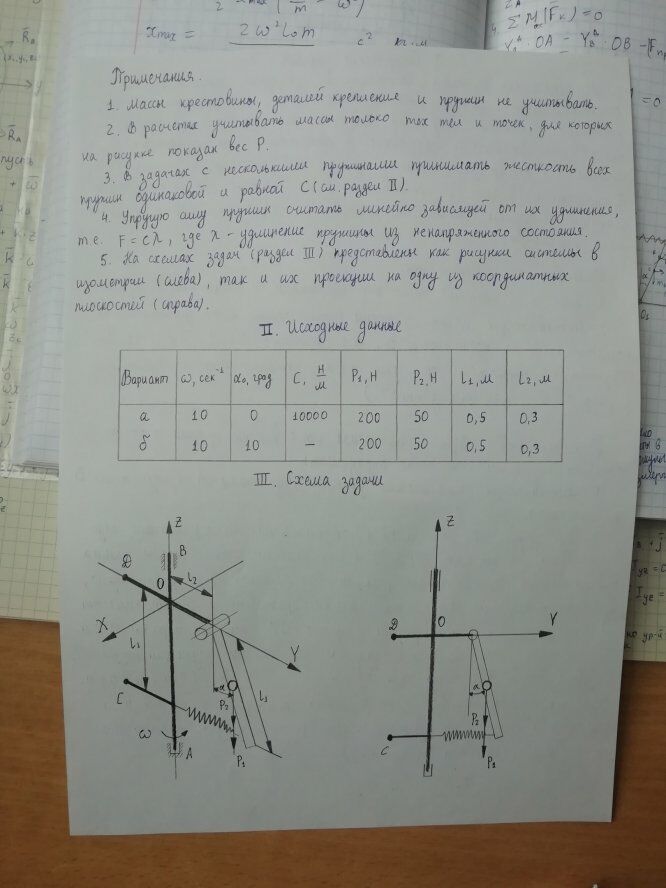 Xmax = 2ω²l₀m
4. ΣM (Fк) = 0
Примечания.
1. Массы крестовины, деталей крепление и пружин не учитывать.
2. В расчетах учитывать массы только тех тел и точек, для которых
на рисунке показан вес P.
3. В задачах с несколькими пружинами принимать жесткость всех
пружин одинаковой и равной С (см. раздел II).
4. Упругую силу пружин считать линейно зависящей от их удлинения,
т.е. F = cλ, где λ - удлинение пружины из ненапряженного состояния.
5. На схемах задач (раздел III) представлены как рисунки системы в
изометрии (слева), так и их проекции на одну из координатных
плоскостей (справа).
II. Исходные данные
Вариант ω, сек⁻¹ α₀, град С, Н/м P₁, Н P₂, Н L₁, м L₂, м
а 10 0 10000 200 50 0,5 0,3
б 10 10 — 200 50 0,5 0,3
III. Схема задачи
Z Z
B
D L₂
O O
D Y
X Y
L₁
C L₁
α α
P₂ P₂
ω
A P₁ C P₁